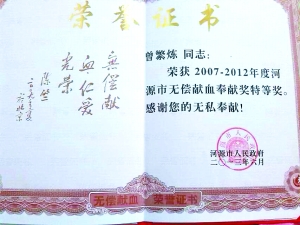 荣誉证书
無偿献
血仁爱
光荣
曾繁炼 同志:
荣获2007-2012年度河
源市无偿献血奉献奖特等奖。
感谢您的无私奉献!
河源市人民政府
二〇一三年六月
无偿献血 荣誉证书